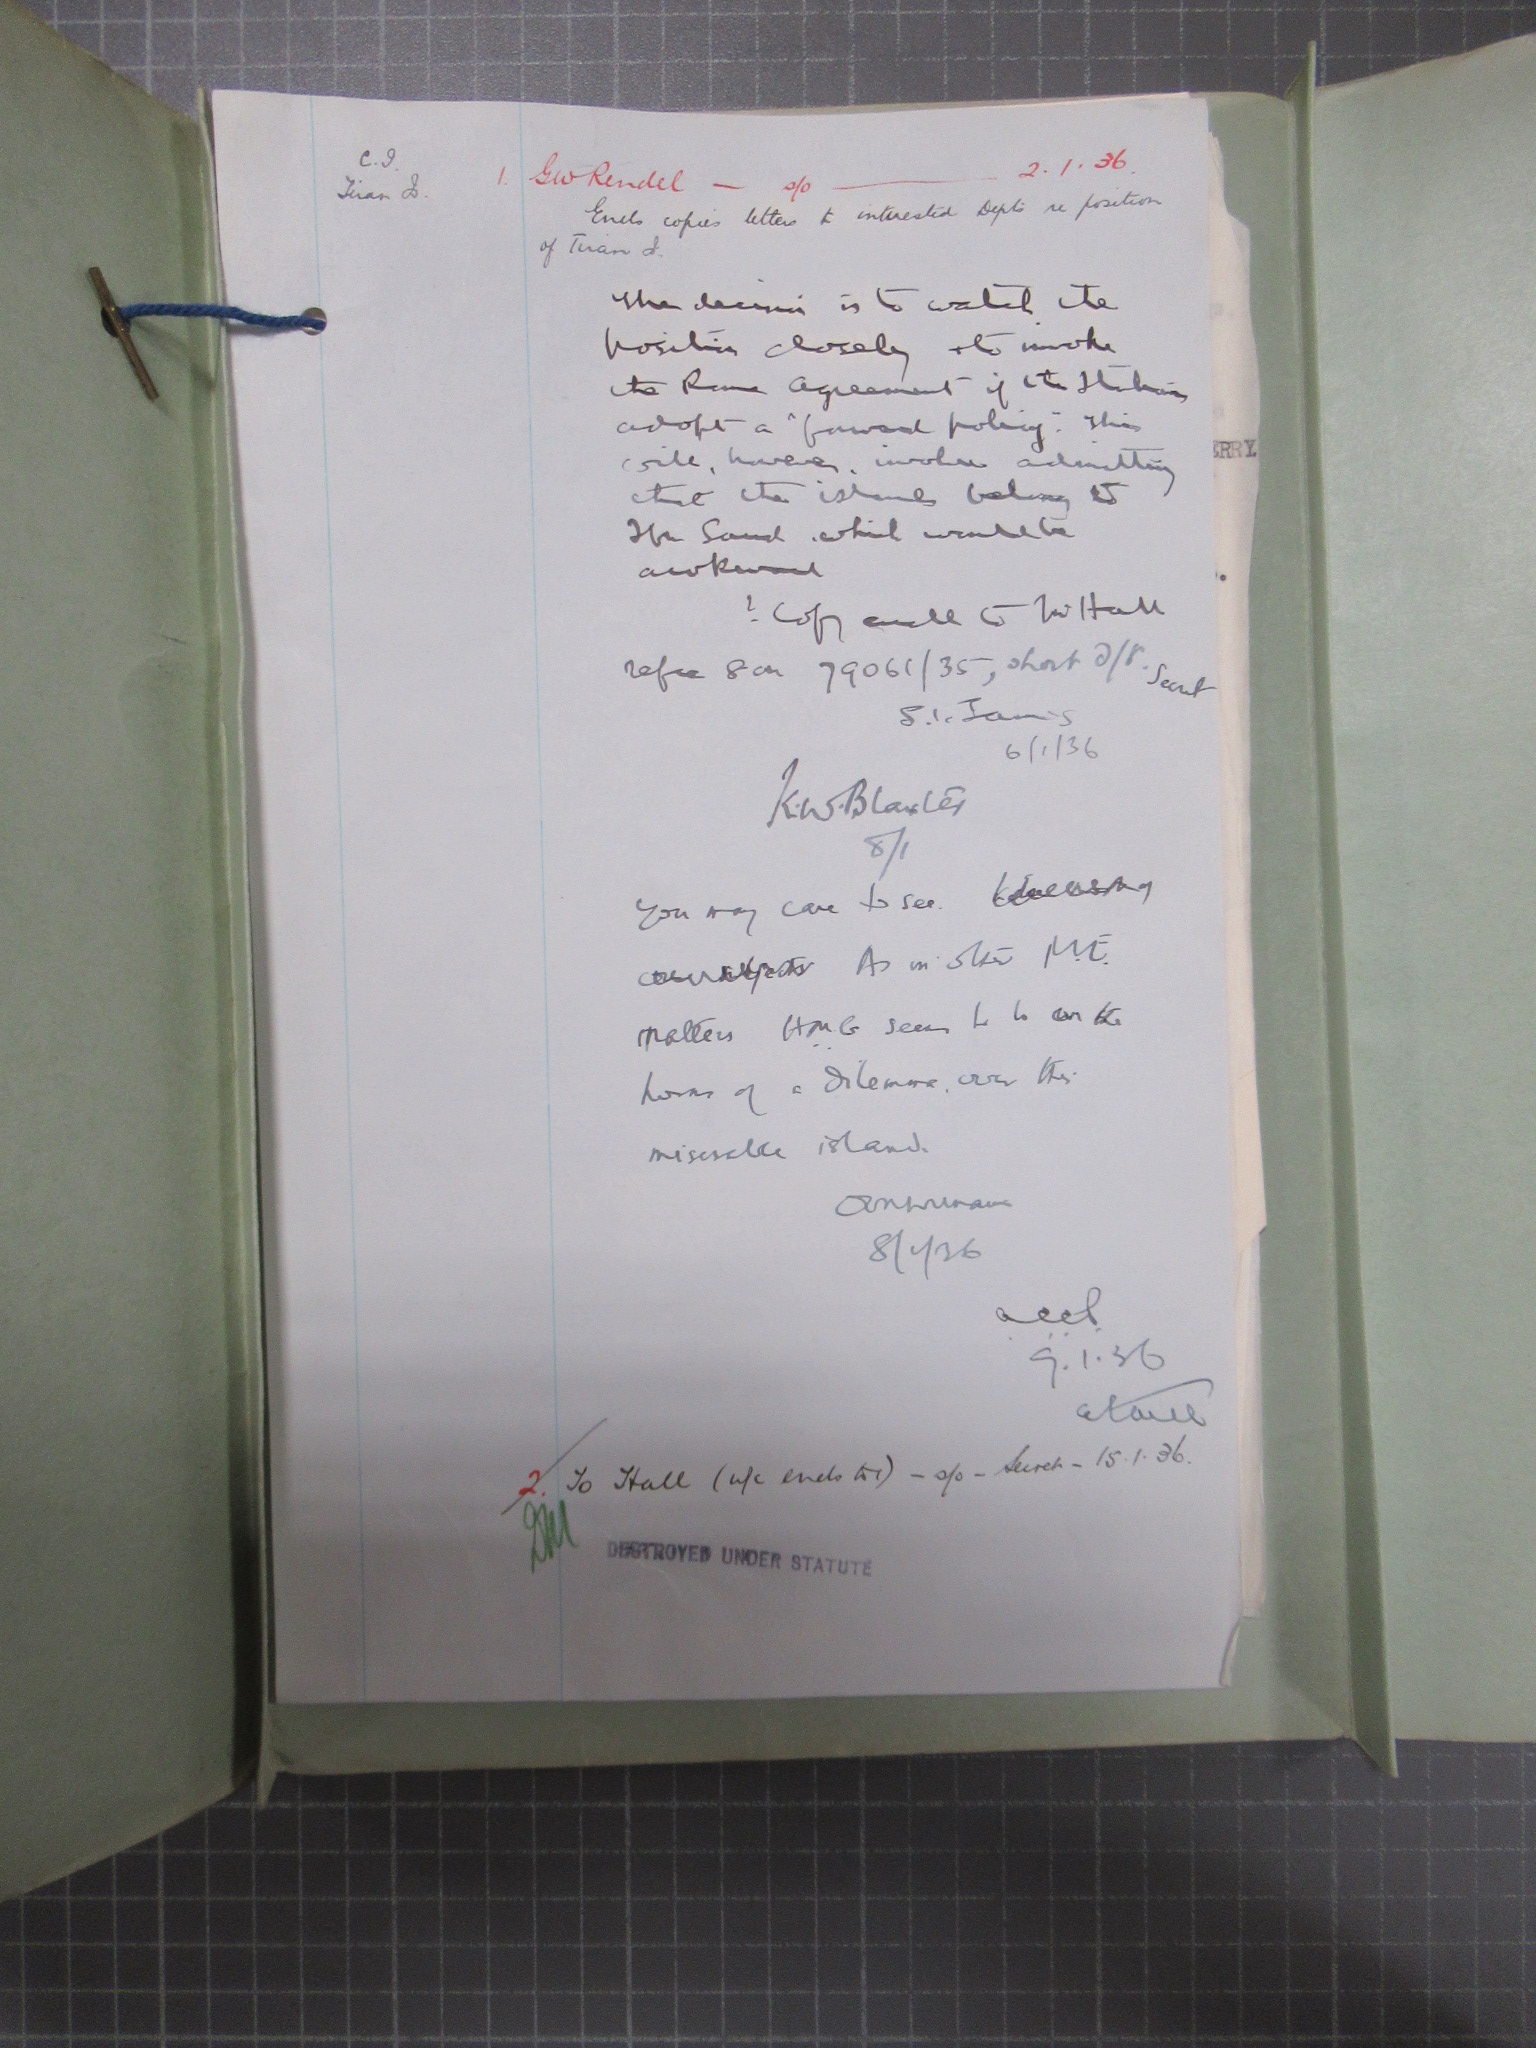 C.I.
Tiran I.
1. GW Rendel — s/o — 2.1.36.
Encls copies letters to interested Depts re position
of Tiran I.
The decision is to watch the
position closely & to invoke
the Rome Agreement if the Italians
adopt a "forward policy". This
will, however, involve admitting
that the islands belong to
Ibn Saud which would be
awkward
? Copy encls to Mr Hall
refce 8 on 79061/35, short d/f. Secret
6/1/36
K.W. Blaxter
8/1
You may care to see.
As in other M.E.
matters HMG seem to be on the
horns of a dilemma over this
miserable island.
8/1/36
9.1.36
2. To Hall (w/c encls to 1) — s/o — Secret — 15.1.36.
DESTROYED UNDER STATUTE
ERRY